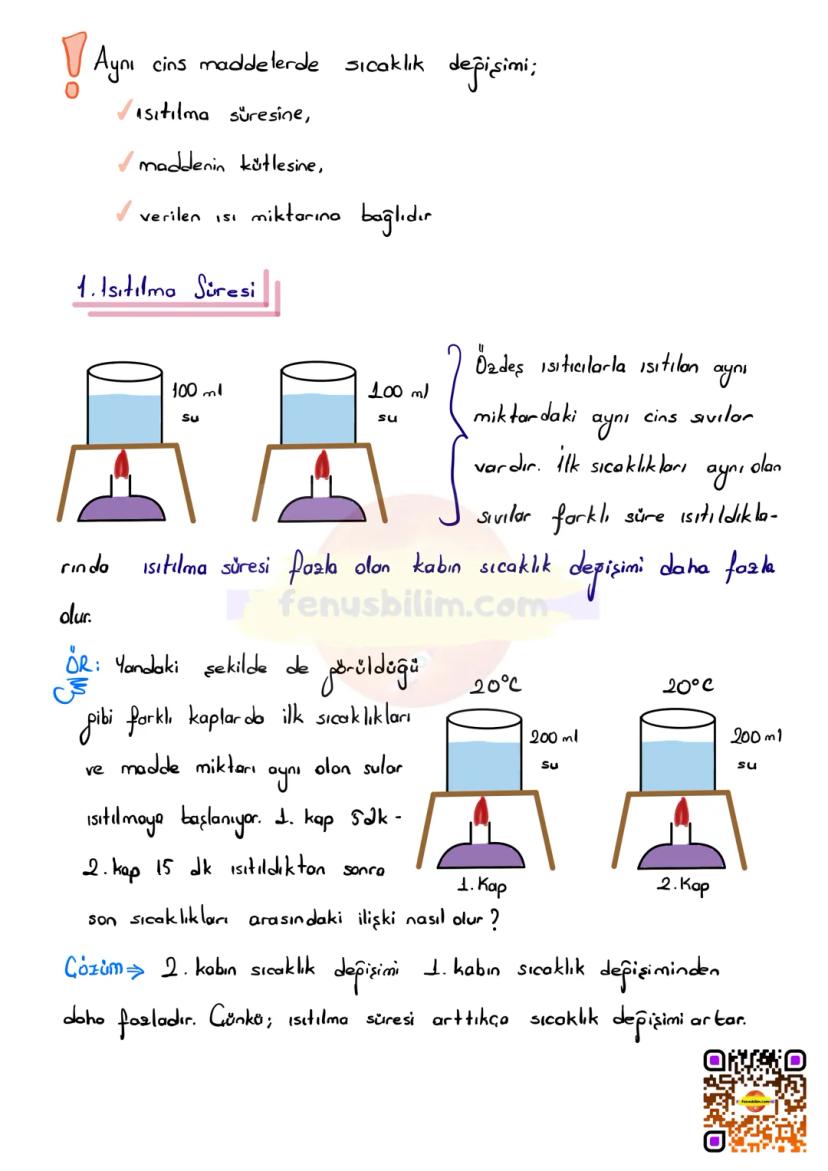 ! Aynı cins maddelerde sıcaklık değişimi;
✓ ısıtılma süresine,
✓ maddenin kütlesine,
✓ verilen ısı miktarına bağlıdır
1. Isıtılma Süresi
100 ml
su
100 ml
su
Özdeş ısıtıcılarla ısıtılan aynı
miktardaki aynı cins sıvılar
vardır. İlk sıcaklıkları aynı olan
sıvılar farklı süre ısıtıldıkla-
rında ısıtılma süresi fazla olan kabın sıcaklık değişimi daha fazla
olur.
fenusbilim.com
ÖR: Yandaki şekilde de görüldüğü
gibi farklı kaplarda ilk sıcaklıkları
ve madde miktarı aynı olan sular
ısıtılmaya başlanıyor. 1. kap 5dk -
2. kap 15 dk ısıtıldıktan sonra
son sıcaklıkları arasındaki ilişki nasıl olur?
20°C
200 ml
su
1. Kap
20°C
200 ml
su
2. Kap
Çözüm⇒ 2. kabın sıcaklık değişimi 1. kabın sıcaklık değişiminden
daha fazladır. Çünkü; ısıtılma süresi arttıkça sıcaklık değişimi artar.
fenusbilim.com